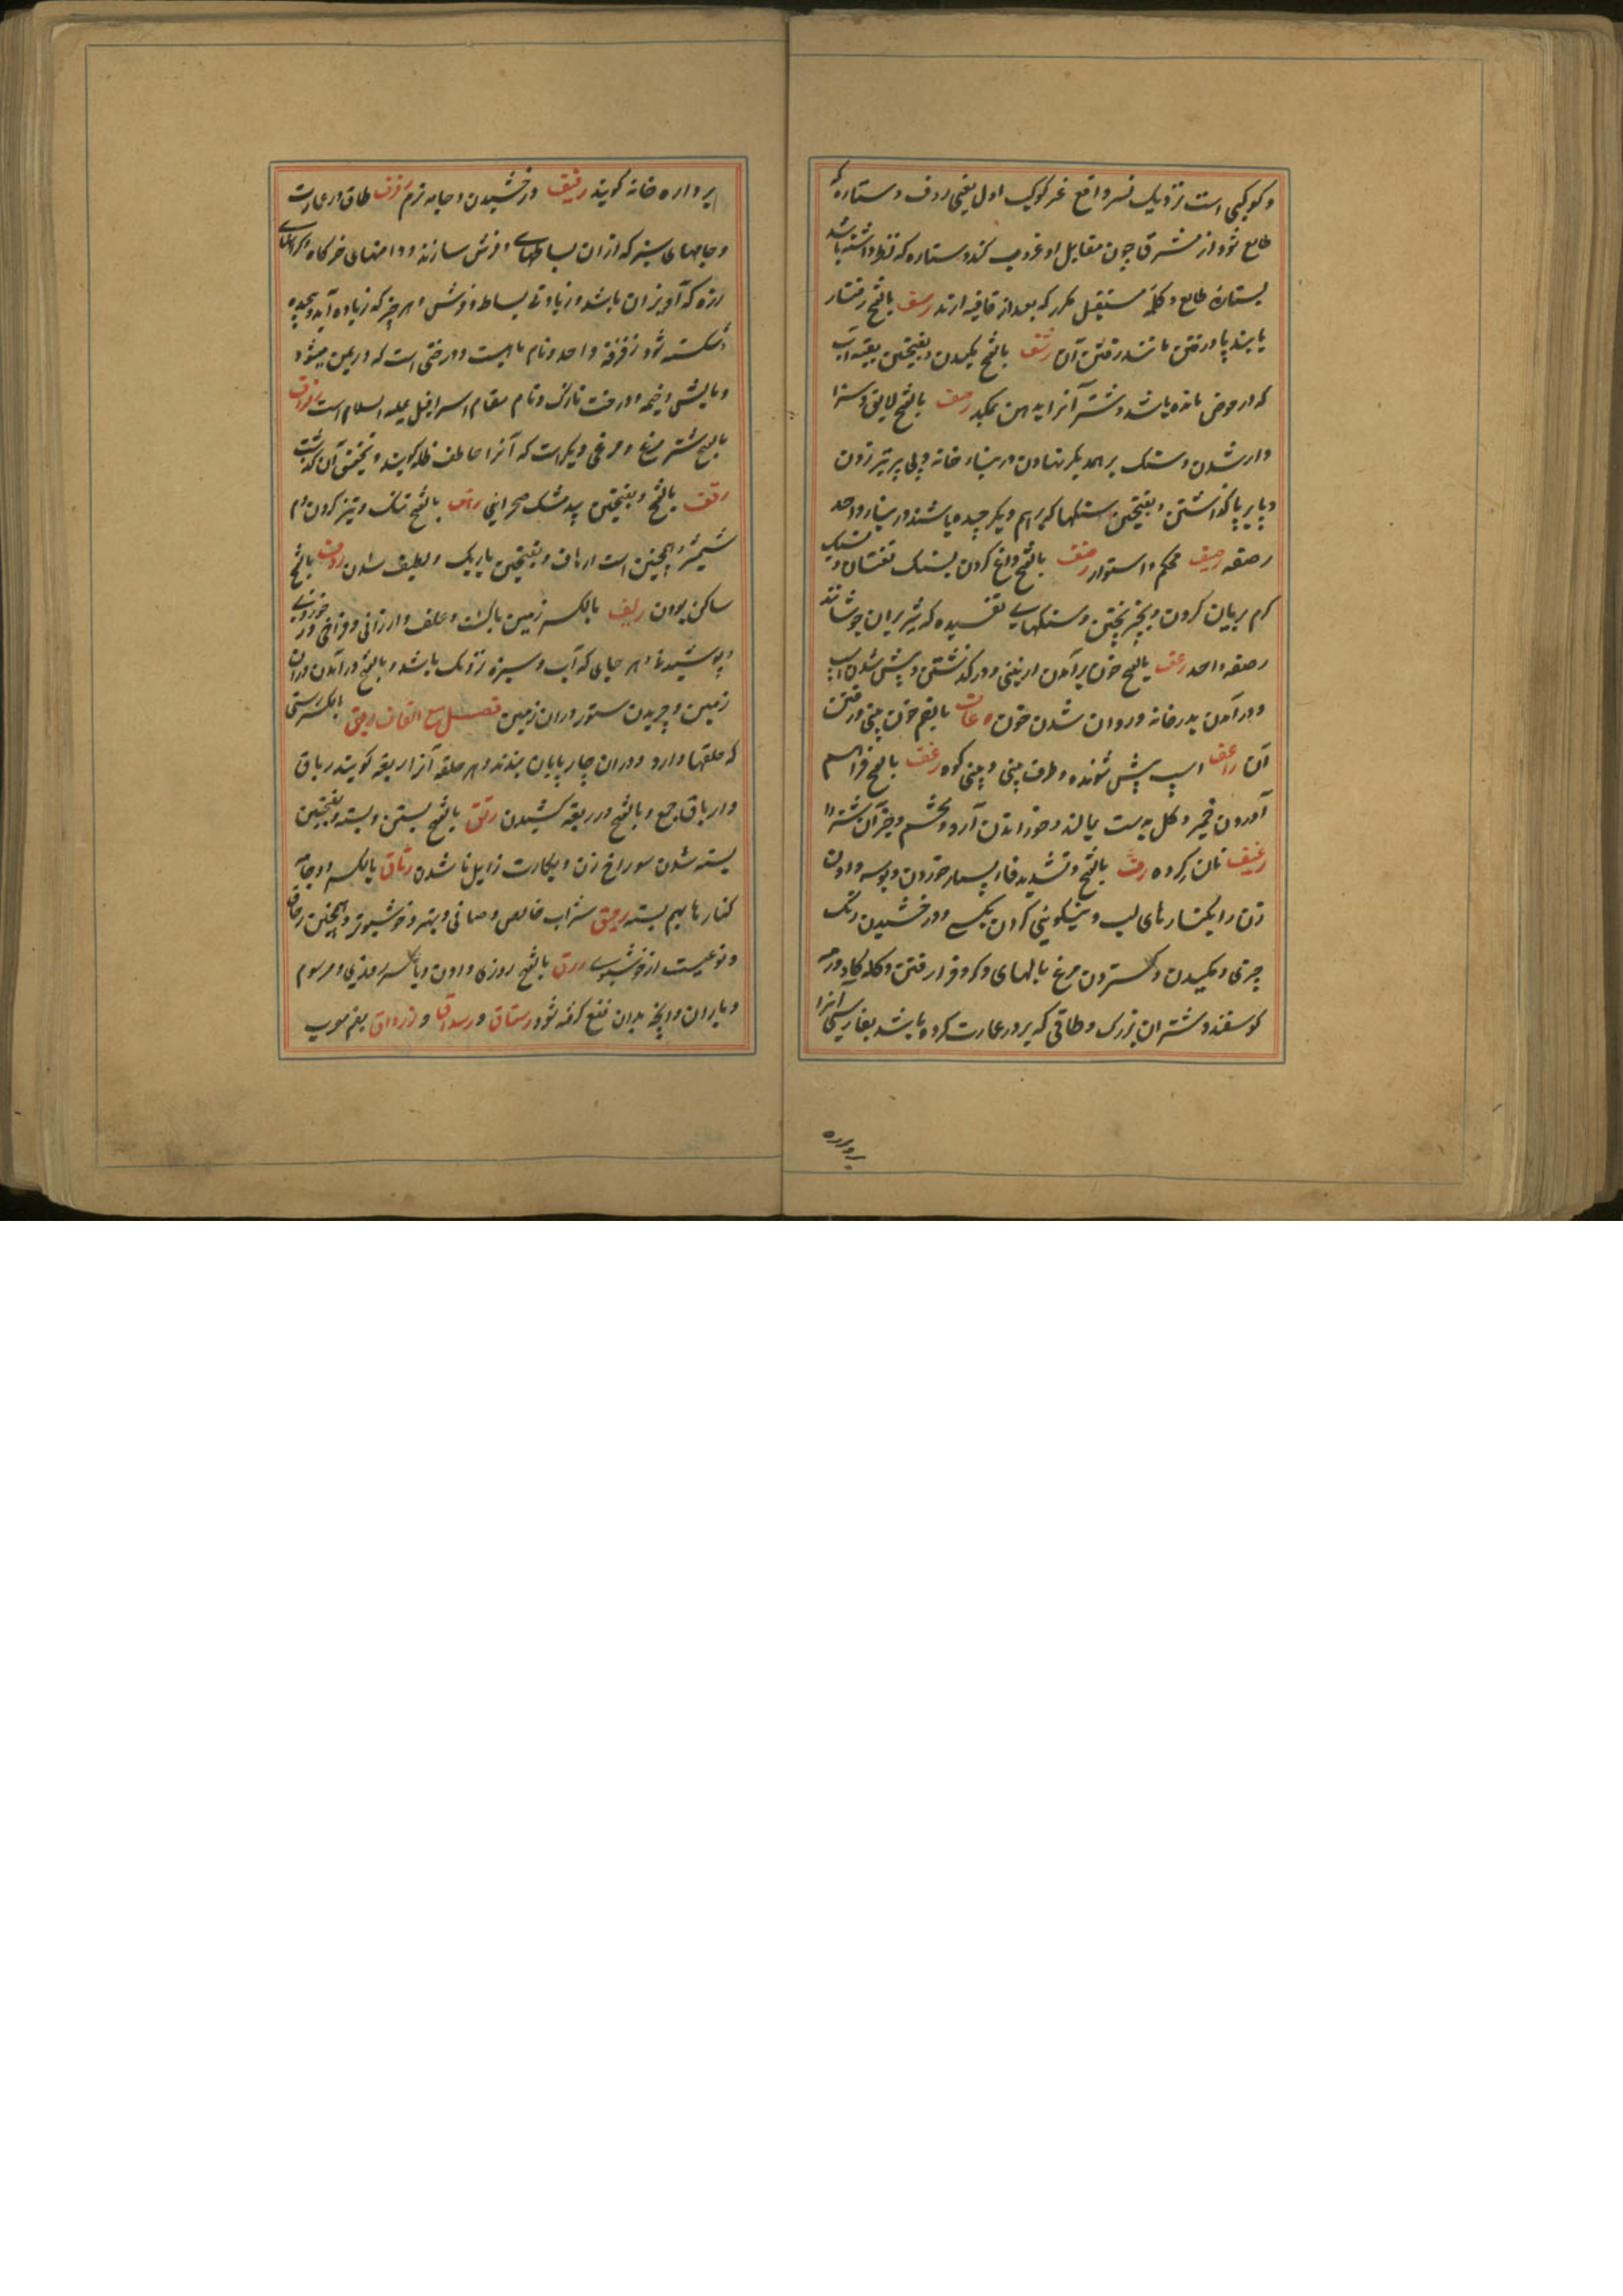 و کوکبی است نزدیک نسر واقع غر کوکب اول یعنی ردف و ستاره که
طالع شود از مشرق چون مقابل او غروب کند و ستاره که نظر داشته باشد
بستاره طالع و کلمه مستقل مکرر که بعد از قافیه ارند رسف بالفتح رفتار
پابند پا و رفتن مانند رفتن آن رشف بالفتح مکیدن و بفتحتین بقیه آب
که در حوض مانده باشد و شتر آنرا بدهن بمکد رصف بالفتح لایق و سزا
وار شدن و سنک بر همدیکر نهادن در بناء خانه و پی بر تیر زدن
و پا بر پا گذاشتن و بفتحتین سنکها که بر هم دیکر چیده باشند در بنا و واحد
رصفه رصیف محکم و استوار رضف بالفتح داغ کردن بسنک تفسان و بسنک
کرم بریان کردن و بخیر پختن و سنکهای تفسیده که شیر بران جوشانند
رضفه واحد رعف بالفتح خون برآمدن از بینی و درگذشتن و پیش شدن اسپ
و درآمدن بدر خانه و روان شدن خون رعاف بالضم خون بینی و رفتن
آن راعف اسپ پیش شونده و طرف بینی و بینی کوه رغف بالفتح فراهم
آوردن خمیر و کل بدست بمالند و خوراندن آرد و تخم و جز آن شتر را
رغیف نان کرده رف بالفتح و تشدید فا بسیار خوردن و بوسه دادن
زن را بکنارهای لب و نیکوئی کردن بکسی و درخشیدن رنک
چیزی و مکیدن و کستردن مرغ بالهای و کرد فرا رفتن و کله کاو و رمه
کوسفند و شتران بزرک و طاقی که بر در عمارت کرده باشند بفارسی آنرا
بر واره
بر واره خانه کویند رفیف درخشیدن و جامه نرم رفرف طاق در عمارت
و جامهای سبز که ازان بساطهای و فرش سازند و دامنهای خرگاه و کرانهای
زره که آویزان باشد و زیادتی بساط و فرش و هر چیز که زیاده آید و پیچیده
و شکسته شود رفرفة واحد و نام ماهیست و درختی است که در یمن میشود
و بالش و خیمه و درخت نازک و نام مقام اسرافیل علیه السلام است رفراف
بالفتح شتر مرغ و مرغی دیکر است که آنرا خاطف ظله کویند و تحقیق آن گذشت
رنف بالفتح و بفتحتین بید مشک صحرایی رهف بالفتح تنک و تیز کردن دم
شمشیر و همچنین است ارهاف و بفتحتین باریک و لطیف شدن روف بالفتح
ساکن بودن ریف بالکسر زمین باکشت و علف و ارزانی و فراخی در خوردنی
و پوشیدنی و هر جای که آب و سبزه نزدیک باشد و بالفتح درآمدن دران
زمین و چریدن ستور دران زمین فصل مع القاف ربق بالکسر رسنی
که حلقها دارد و دران چارپایان بندند و هر حلقه آنرا ربقه کویند رباق
و ارباق جمع و بالفتح در ربقه کشیدن رتق بالفتح بستن و بسته و بفتحتین
بسته شدن سوراخ زن و بکارت زایل نا شدن رتاق بالکسر دو جامه
کنارها بهم بسته رحیق شراب خالص و صافی و بهتر و خوشبوتر و همچنین رحاق
و نوعیست از خوشبوی رزق بالفتح روزی دادن و بالکسر روزی و مرسوم
و باران و آنچه بدان نفع کرفته شود رستاق و رسداق و رزداق بضم معرب